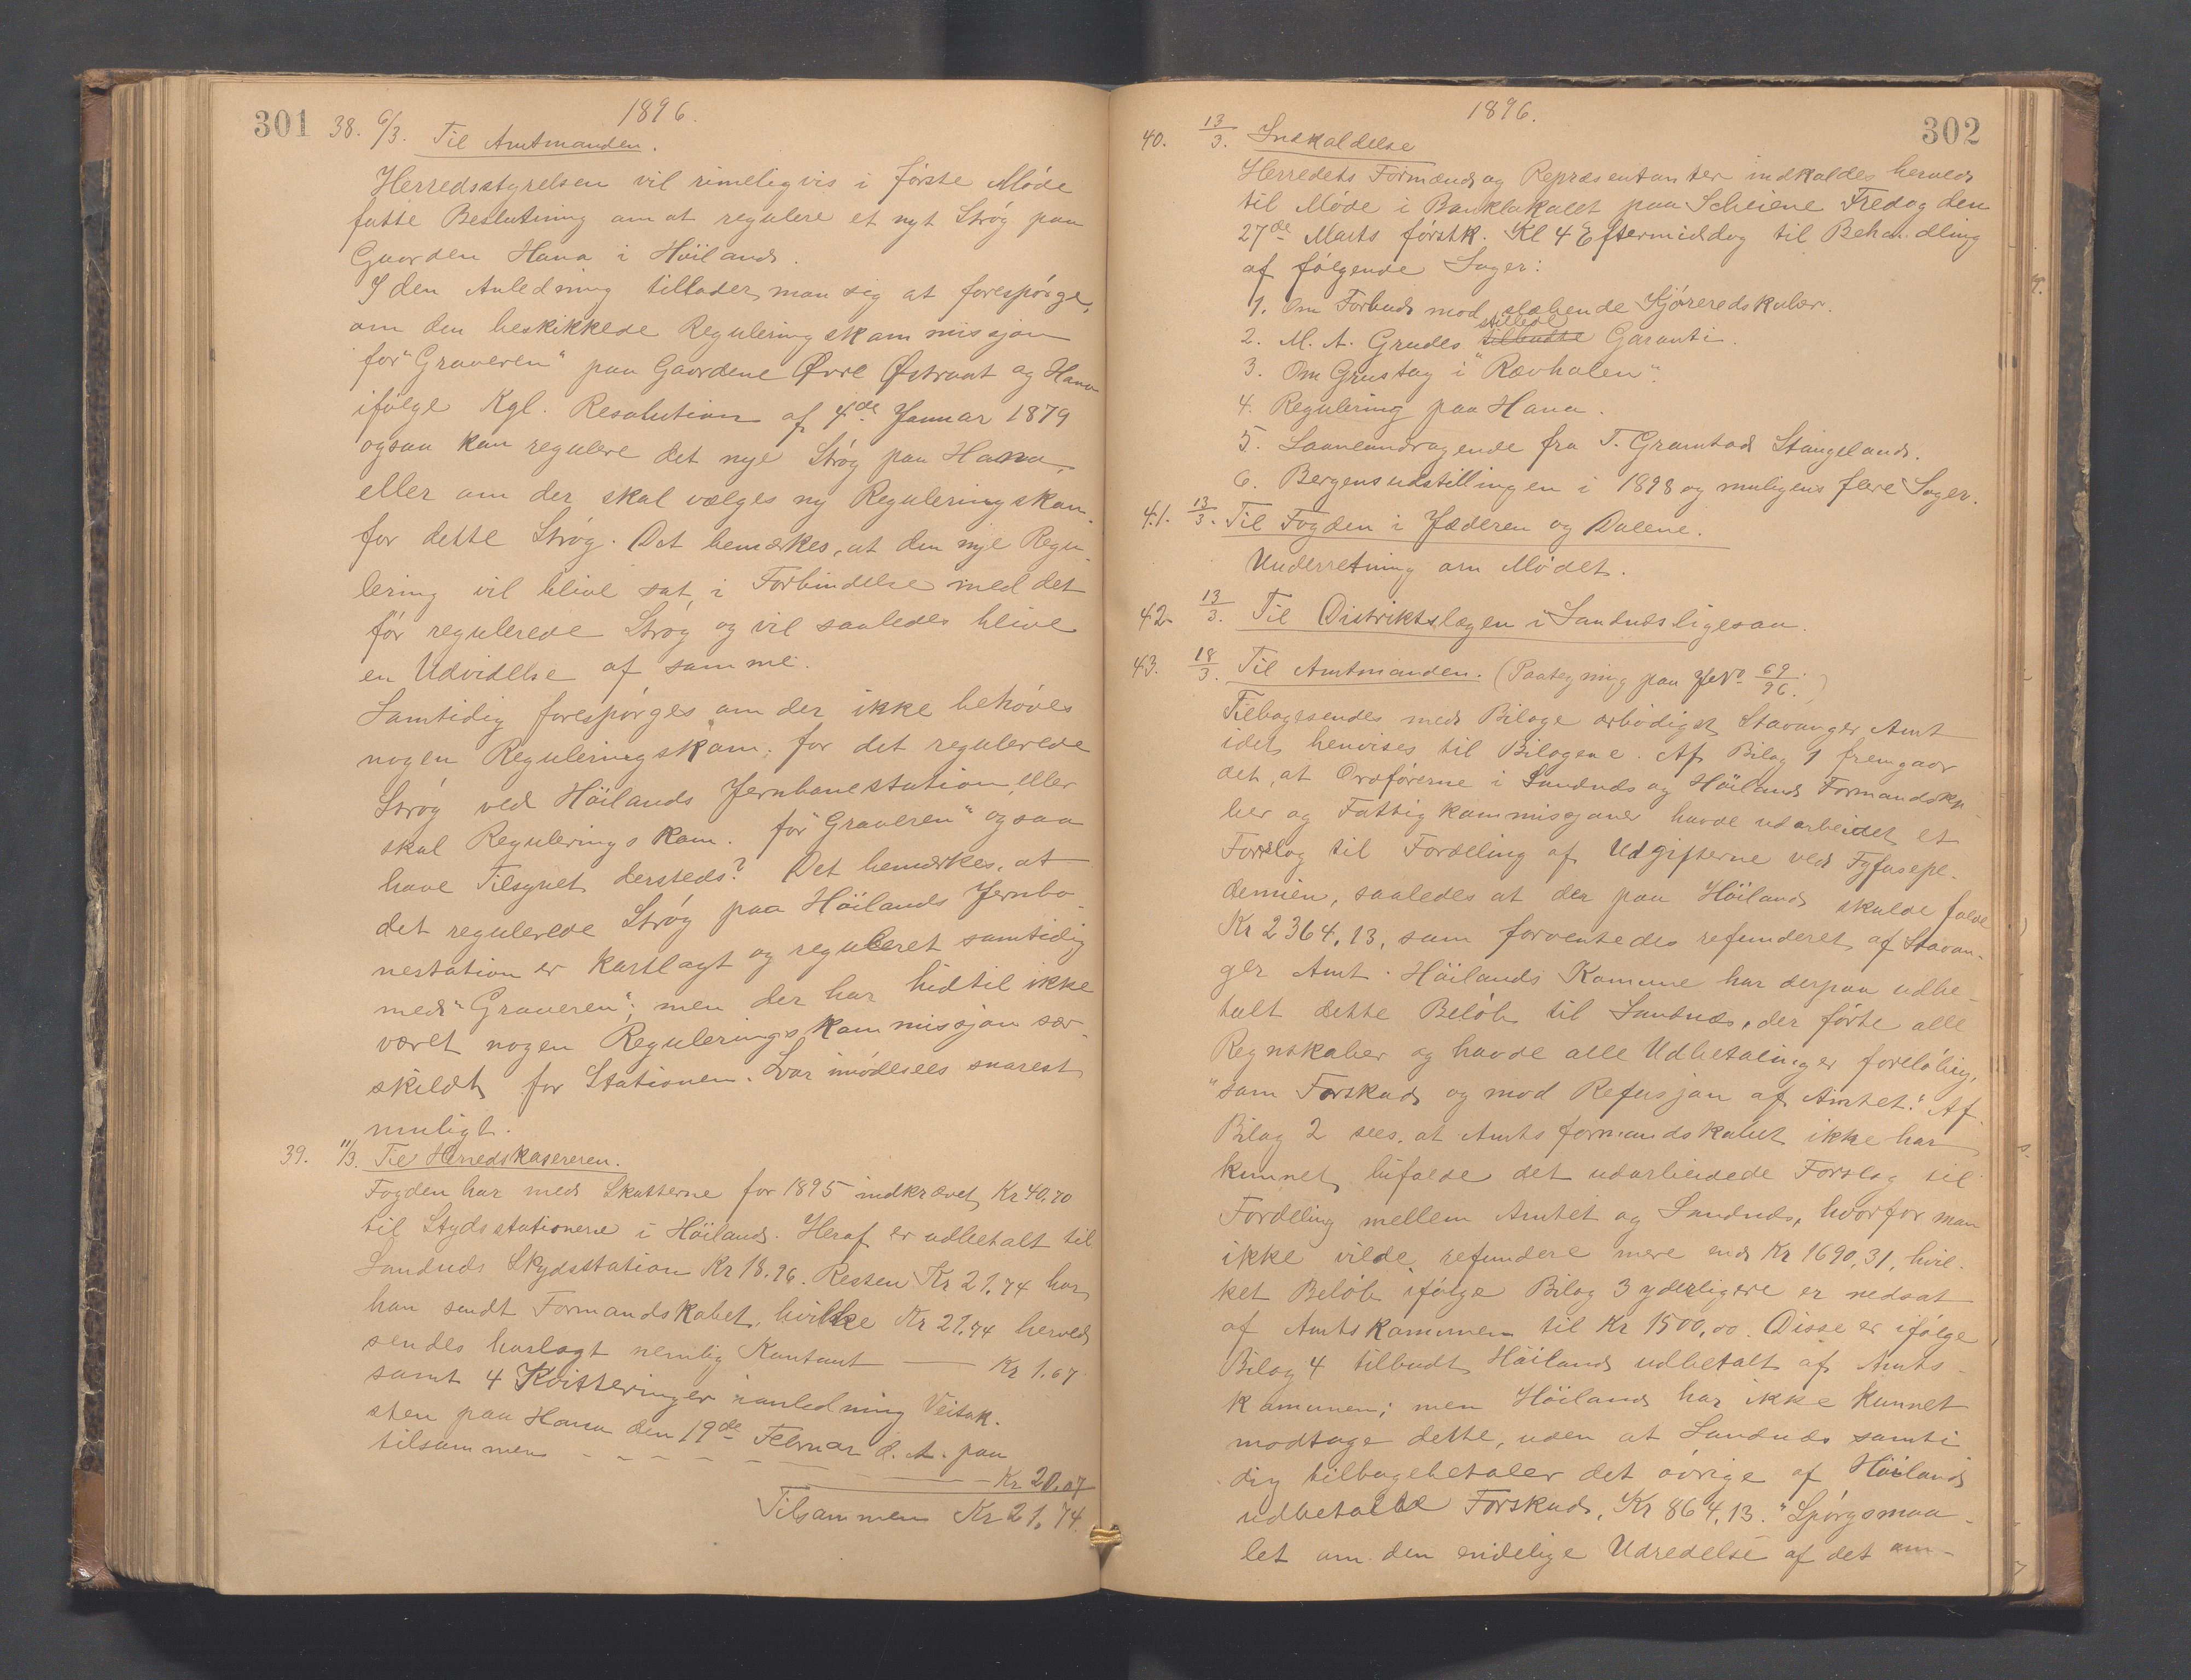 301
1896.
38. 6/3. Til Amtmanden.
Herredsstyrelsen vil rimeligvis i første Møde
fatte Beslutning om at regulere et nyt Strøg paa
Gaarden Hana i Høiland.
I den Anledning tillader man sig at forespørge,
om den beskikkede Reguleringskommissjon
for "Graveren" paa Gaardene Øvre Østraat og Hana
ifølge Kgl. Resolution af 4de Januar 1879
ogsaa kan regulere det nye Strøg paa Hana,
eller om der skal vælges ny Reguleringskom.
for dette Strøg. Det bemærkes, at den nye Regu-
lering vil blive sat i Forbindelse med det
før regulerede Strøg og vil saaledes blive
en Udvidelse af samme.
Samtidig forespørges om der ikke behøves
nogen Reguleringskom. for det regulerede
Strøg ved Høilands Jernbanestation, eller
skal Regulerings kom. for "Graveren" ogsaa
have Tilsynet dersteds? Det bemærkes, at
det regulerede Strøg paa Høilands Jernba-
nestation er kartlagt og reguleret samtidig
med "Graveren"; men der har hidtil ikke
været nogen Regulerings kommissjon sær-
skildt for Stationen. Svar imødesees snarest
muligt.
39. 11/3. Til Herredskasereren.
Fogden har med Skatterne for 1895 indkrævet Kr 40.70
til Skydsstationerne i Høiland. Heraf er udbetalt til
Sandnes Skydsstation Kr 18.96. Resten Kr 21.74 har
han sendt Formandskabet, hvilke Kr 21.74 herved
sendes harlagt nemlig Kontant — Kr 1.67
samt 4 Kvitteringer i anledning Veitak-
sten paa Hana den 19de Februar d. A. paa
tilsammen - - - - - Kr 20.07
Tilsammen Kr 21.74.
1896.
302
40. 13/3. Indkaldelse
Herredets Formænd og Repræsentanter indkaldes herved
til Møde i Banklokalet paa Scheiene Fredag den
27de Marts førstk. Kl 4 Eftermiddag til Behandling
af følgende Sager:
1. Om Forbud mod slæbende Kjøreredskaber.
2. M. A. Grudes stillede tilbudte Garanti.
3. Om Grustag i "Rævhalen".
4. Regulering paa Hana.
5. Laaneandragende fra T. Gramstad Stangeland.
6. Bergensudstillingen i 1898 og muligens flere Sager.
41. 13/3. Til Fogden i Jæderen og Dalene.
Underretning om Mødet.
42. 13/3. Til Distriktslægen i Sandnes ligesaa.
43. 18/3. Til Amtmanden. (Paategning paa JNo 69/96.)
Tilbagesendes med Bilage ærbødigst Stavanger Amt
idet henvises til Bilagene. Af Bilag 1 fremgaar
det, at Ordførerne i Sandnes og Høiland Formandska-
ber og Fattigkommissjoner havde udarbeidet et
Forslag til Fordeling af Udgifterne ved Tyfusepi-
demien, saaledes at der paa Høiland skulde falde
Kr 2364,13, som forventedes refunderet af Stavan-
ger Amt. Høilands Komune har derpaa udbe-
talt dette Beløb til Sandnes, der førte alle
Regnskaber og havde alle Udbetalinger foreløbig,
"som Forskud og mod Refusjon af Amtet." Af
Bilag 2 sees, at Amtsformandskabet ikke har
kunnet bifalde det udarbeidede Forslag til
Fordeling mellem Amtet og Sandnes, hvorfor man
ikke vilde refundere mere end Kr 1690,31, hvil-
ket Beløb ifølge Bilag 3 yderligere er nedsat
af Amtskomunen til Kr 1500,00. Disse er ifølge
Bilag 4 tilbudt Høiland udbetalt af Amts-
komunen; men Høiland har ikke kunnet
modtage dette, uden at Sandnes samti
dig tilbagebetaler det øvrige af Høiland
udbetalte Forskud, Kr 864,13. "Spørgsmaa-
let om den endelige Udredelse af det om-